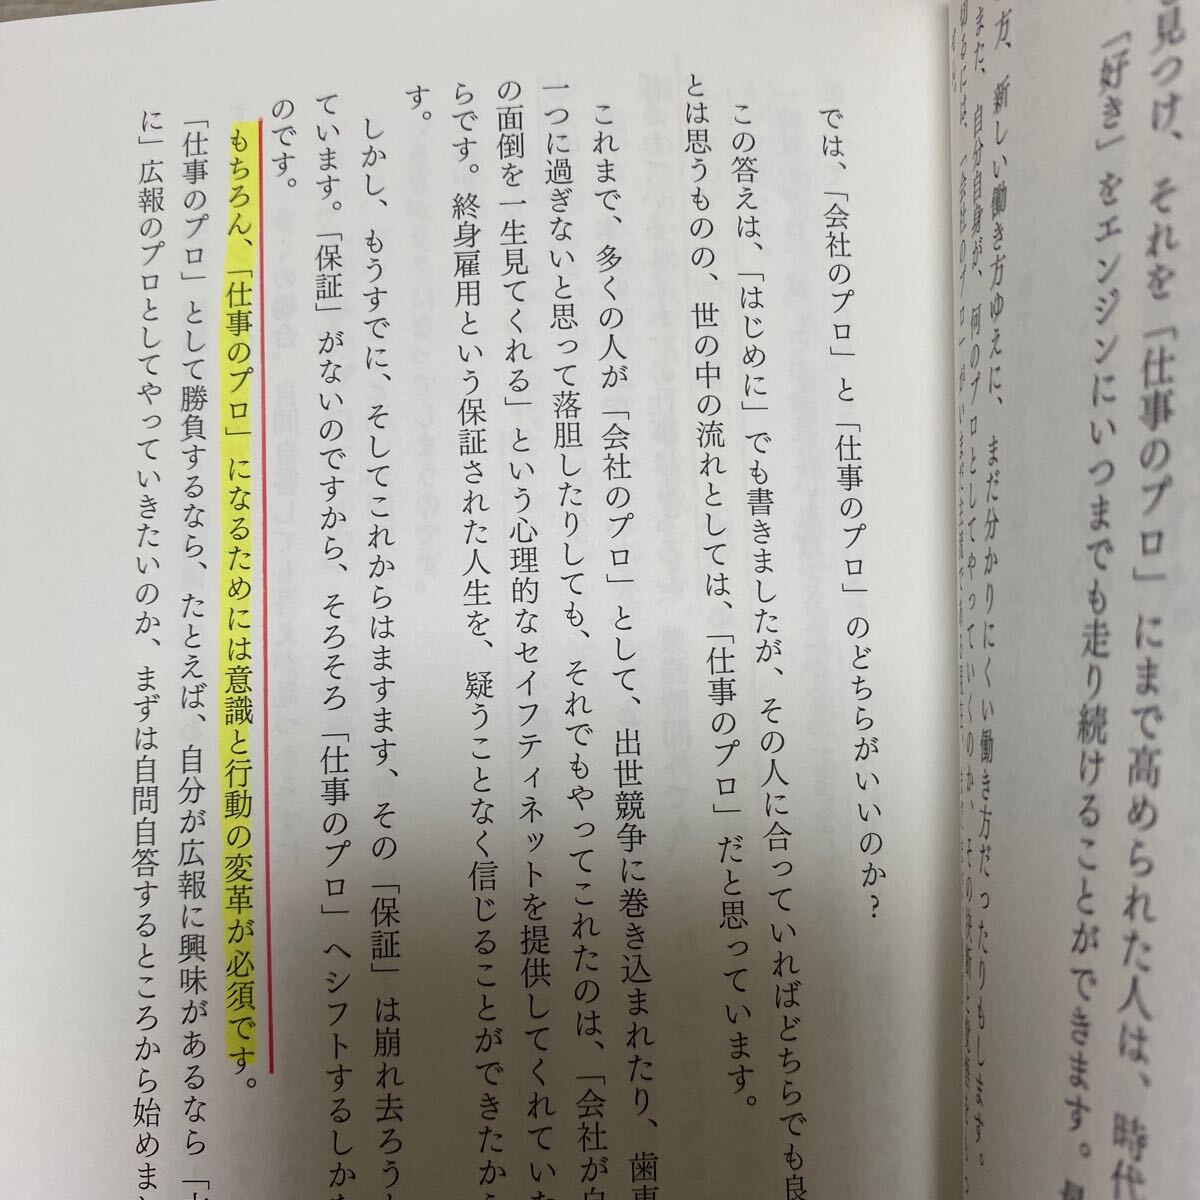 見つけ、それを「仕事のプロ」にまで高められた人は、時代
「好き」をエンジンにいつまでも走り続けることができます。
方、新しい働き方ゆえに、まだ分かりにくい働き方だったりもします。
また、自分自身が、何のプロとしてやっていくのか、その決断と覚悟
では、「会社のプロ」と「仕事のプロ」のどちらがいいのか?
この答えは、「はじめに」でも書きましたが、その人に合っていればどちらでも良
とは思うものの、世の中の流れとしては、「仕事のプロ」だと思っています。
これまで、多くの人が「会社のプロ」として、出世競争に巻き込まれたり、歯車
一つに過ぎないと思って落胆したりしても、それでもやってこれたのは、「会社が
の面倒を一生見てくれる」という心理的なセイフティネットを提供してくれてい
らです。終身雇用という保証された人生を、疑うことなく信じることができたか
す。
しかし、もうすでに、そしてこれからはますます、その「保証」は崩れ去ろう
ています。「保証」がないのですから、そろそろ「仕事のプロ」へシフトするし
のです。
もちろん、「仕事のプロ」になるためには意識と行動の変革が必須です。
「仕事のプロ」として勝負するなら、たとえば、自分が広報に興味があるなら「
に」広報のプロとしてやっていきたいのか、まずは自問自答するところから始めま